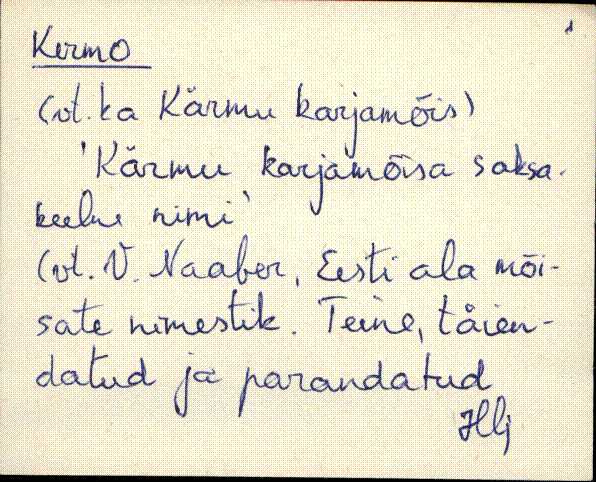 Kermo
(vt. ka Kärmu karjamõis)
'Kärmu karjamõisa saksa-
keelne nimi'
(vt. V. Naaber, Eesti ala mõi-
sate nimestik. Teine, täien-
datud ja parandatud